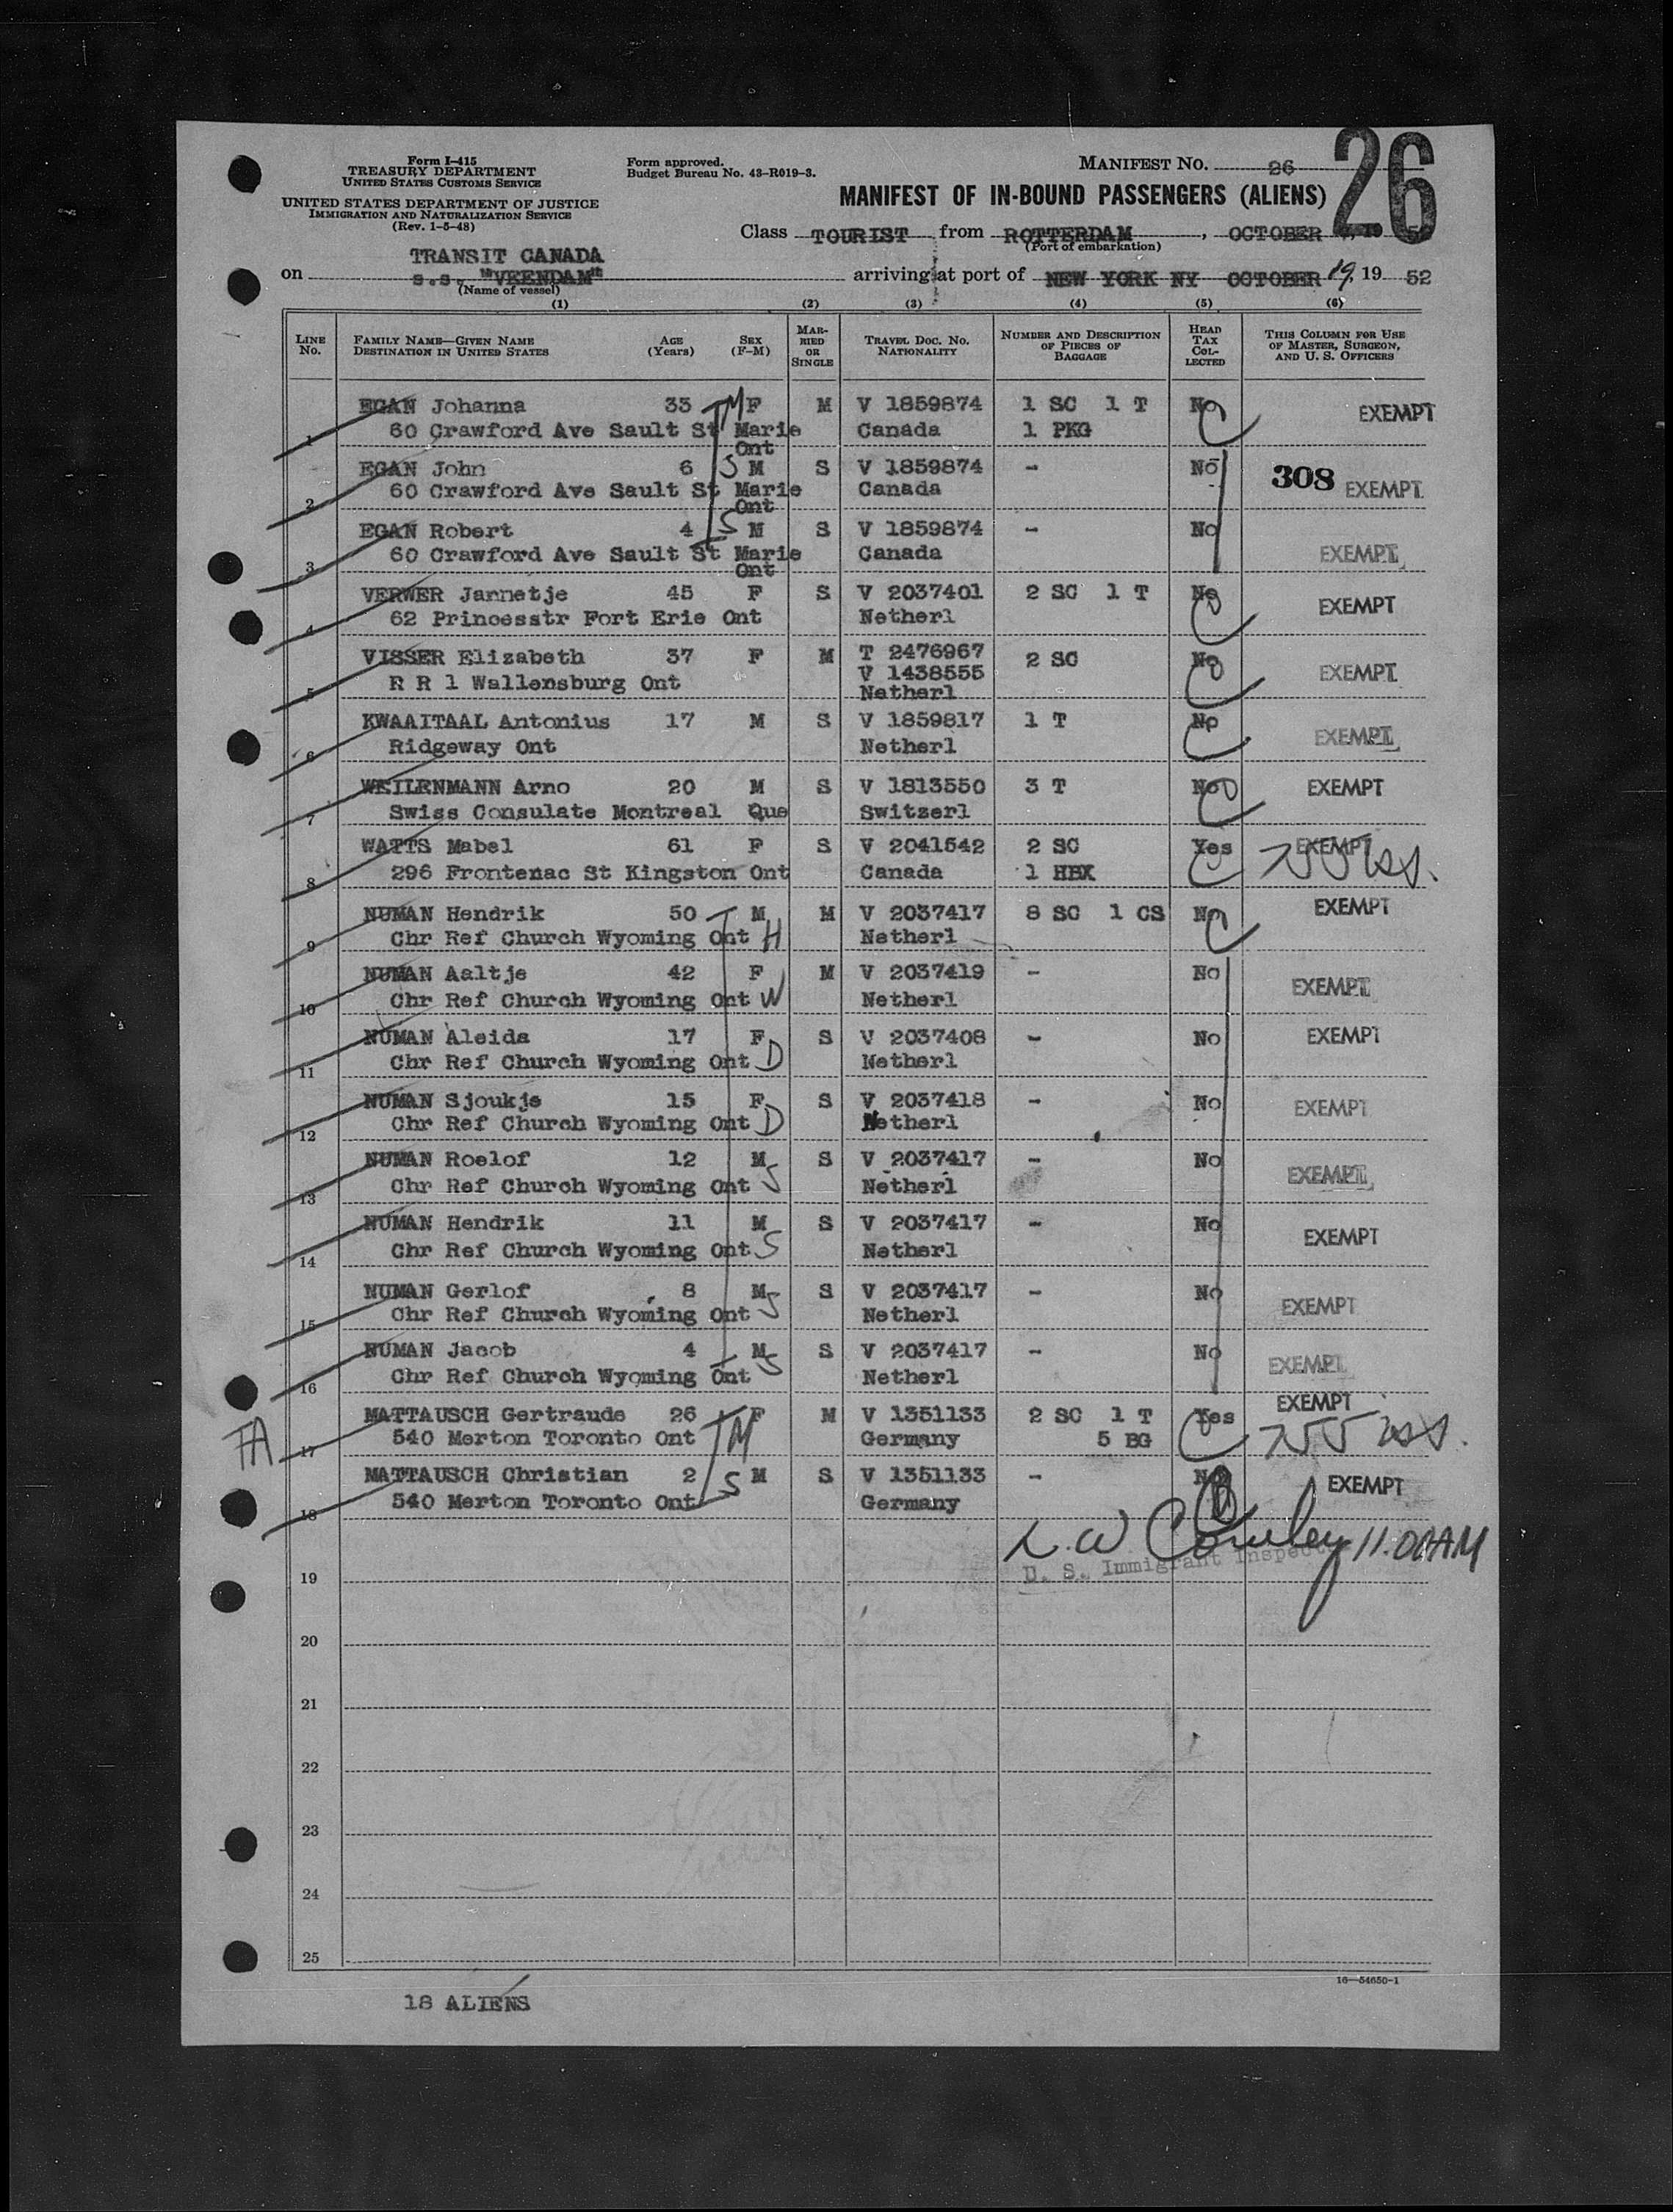 Form I-415
TREASURY DEPARTMENT
UNITED STATES CUSTOMS SERVICE
UNITED STATES DEPARTMENT OF JUSTICE
IMMIGRATION AND NATURALIZATION SERVICE
(Rev. 1-5-48)
Form approved.
Budget Bureau No. 43-R019-3.
MANIFEST NO. 26
26
MANIFEST OF IN-BOUND PASSENGERS (ALIENS)
Class TOURIST from ROTTERDAM, OCTOBER 19 52
(Port of embarkation)
TRANSIT CANADA
on s.s. "VEENDAM" arriving at port of NEW YORK NY OCTOBER 19, 19 52
(Name of vessel)
(1) (2) (3) (4) (5) (6)
LINE No. FAMILY NAME—GIVEN NAME DESTINATION IN UNITED STATES AGE (Years) SEX (F-M) MARRIED OR SINGLE TRAVEL DOC. NO. NATIONALITY NUMBER AND DESCRIPTION OF PIECES OF BAGGAGE HEAD TAX COLLECTED THIS COLUMN FOR USE OF MASTER, SURGEON, AND U. S. OFFICERS
EGAN Johanna 33 M F M V 1859874 1 SC 1 T No EXEMPT
1 60 Crawford Ave Sault St Marie Ont Canada 1 PKG
EGAN John 6 S M S V 1859874 - No 308 EXEMPT
2 60 Crawford Ave Sault St Marie Ont Canada
EGAN Robert 4 S M S V 1859874 - No EXEMPT
3 60 Crawford Ave Sault St Marie Ont Canada
VERWER Jannetje 45 F S V 2037401 2 SC 1 T No EXEMPT
4 62 Princesstr Fort Erie Ont Netherl
VISSER Elizabeth 37 F M T 2476967 2 SC No EXEMPT
5 R R 1 Wallensburg Ont V 1438555 Netherl
KWAAITAAL Antonius 17 M S V 1859817 1 T No EXEMPT
6 Ridgeway Ont Netherl
WEILENMANN Arno 20 M S V 1813550 3 T No EXEMPT
7 Swiss Consulate Montreal Que Switzerl
WATTS Mabel 61 F S V 2041542 2 SC Yes EXEMPT
8 296 Frontenac St Kingston Ont Canada 1 HBX
NUMAN Hendrik 50 M M V 2037417 8 SC 1 CS No EXEMPT
9 Chr Ref Church Wyoming Ont H Netherl
NUMAN Aaltje 42 F M V 2037419 - No EXEMPT
10 Chr Ref Church Wyoming Ont W Netherl
NUMAN Aleida 17 F S V 2037408 - No EXEMPT
11 Chr Ref Church Wyoming Ont D Netherl
NUMAN Sjoukje 15 F S V 2037418 - No EXEMPT
12 Chr Ref Church Wyoming Ont D Netherl
NUMAN Roelof 12 M S V 2037417 - No EXEMPT
13 Chr Ref Church Wyoming Ont S Netherl
NUMAN Hendrik 11 M S V 2037417 - No EXEMPT
14 Chr Ref Church Wyoming Ont S Netherl
NUMAN Gerlof 8 M S V 2037417 - No EXEMPT
15 Chr Ref Church Wyoming Ont S Netherl
NUMAN Jacob 4 M S V 2037417 - No EXEMPT
16 Chr Ref Church Wyoming Ont S Netherl
MATTAUSCH Gertraude 26 F M V 1351133 2 SC 1 T Yes EXEMPT
TA 17 540 Merton Toronto Ont M Germany 5 BG
MATTAUSCH Christian 2 S M S V 1351133 - No EXEMPT
18 540 Merton Toronto Ont Germany
11:00AM
U. S. Immigrant Inspector
19
20
21
22
23
24
25
16—54650-1
18 ALIENS